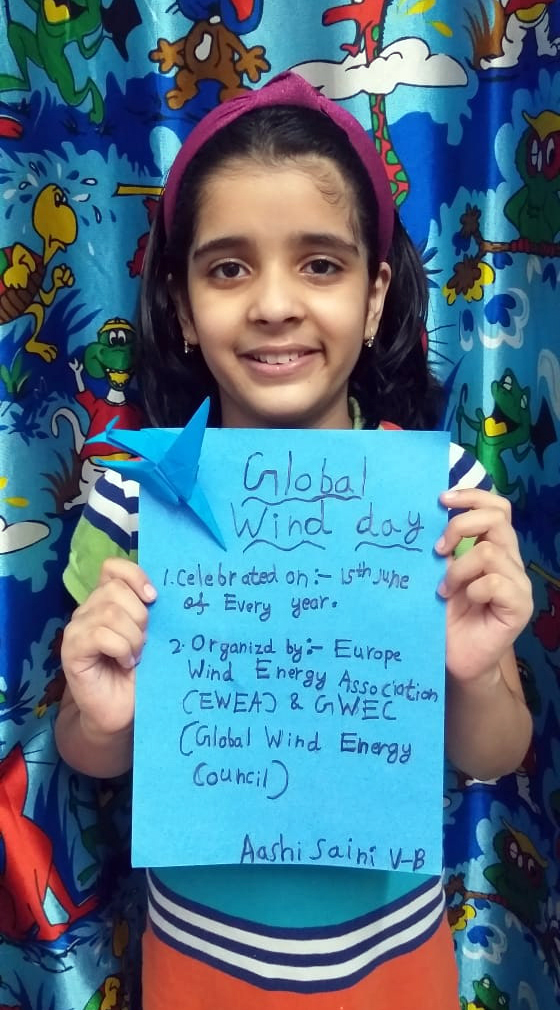 Global
Wind day
1. Celebrated on:- 15th June
of Every year.
2. Organizd by:- Europe
Wind Energy Association
(EWEA) & GWEC
(Global Wind Energy
Council)
Aashi Saini V-B